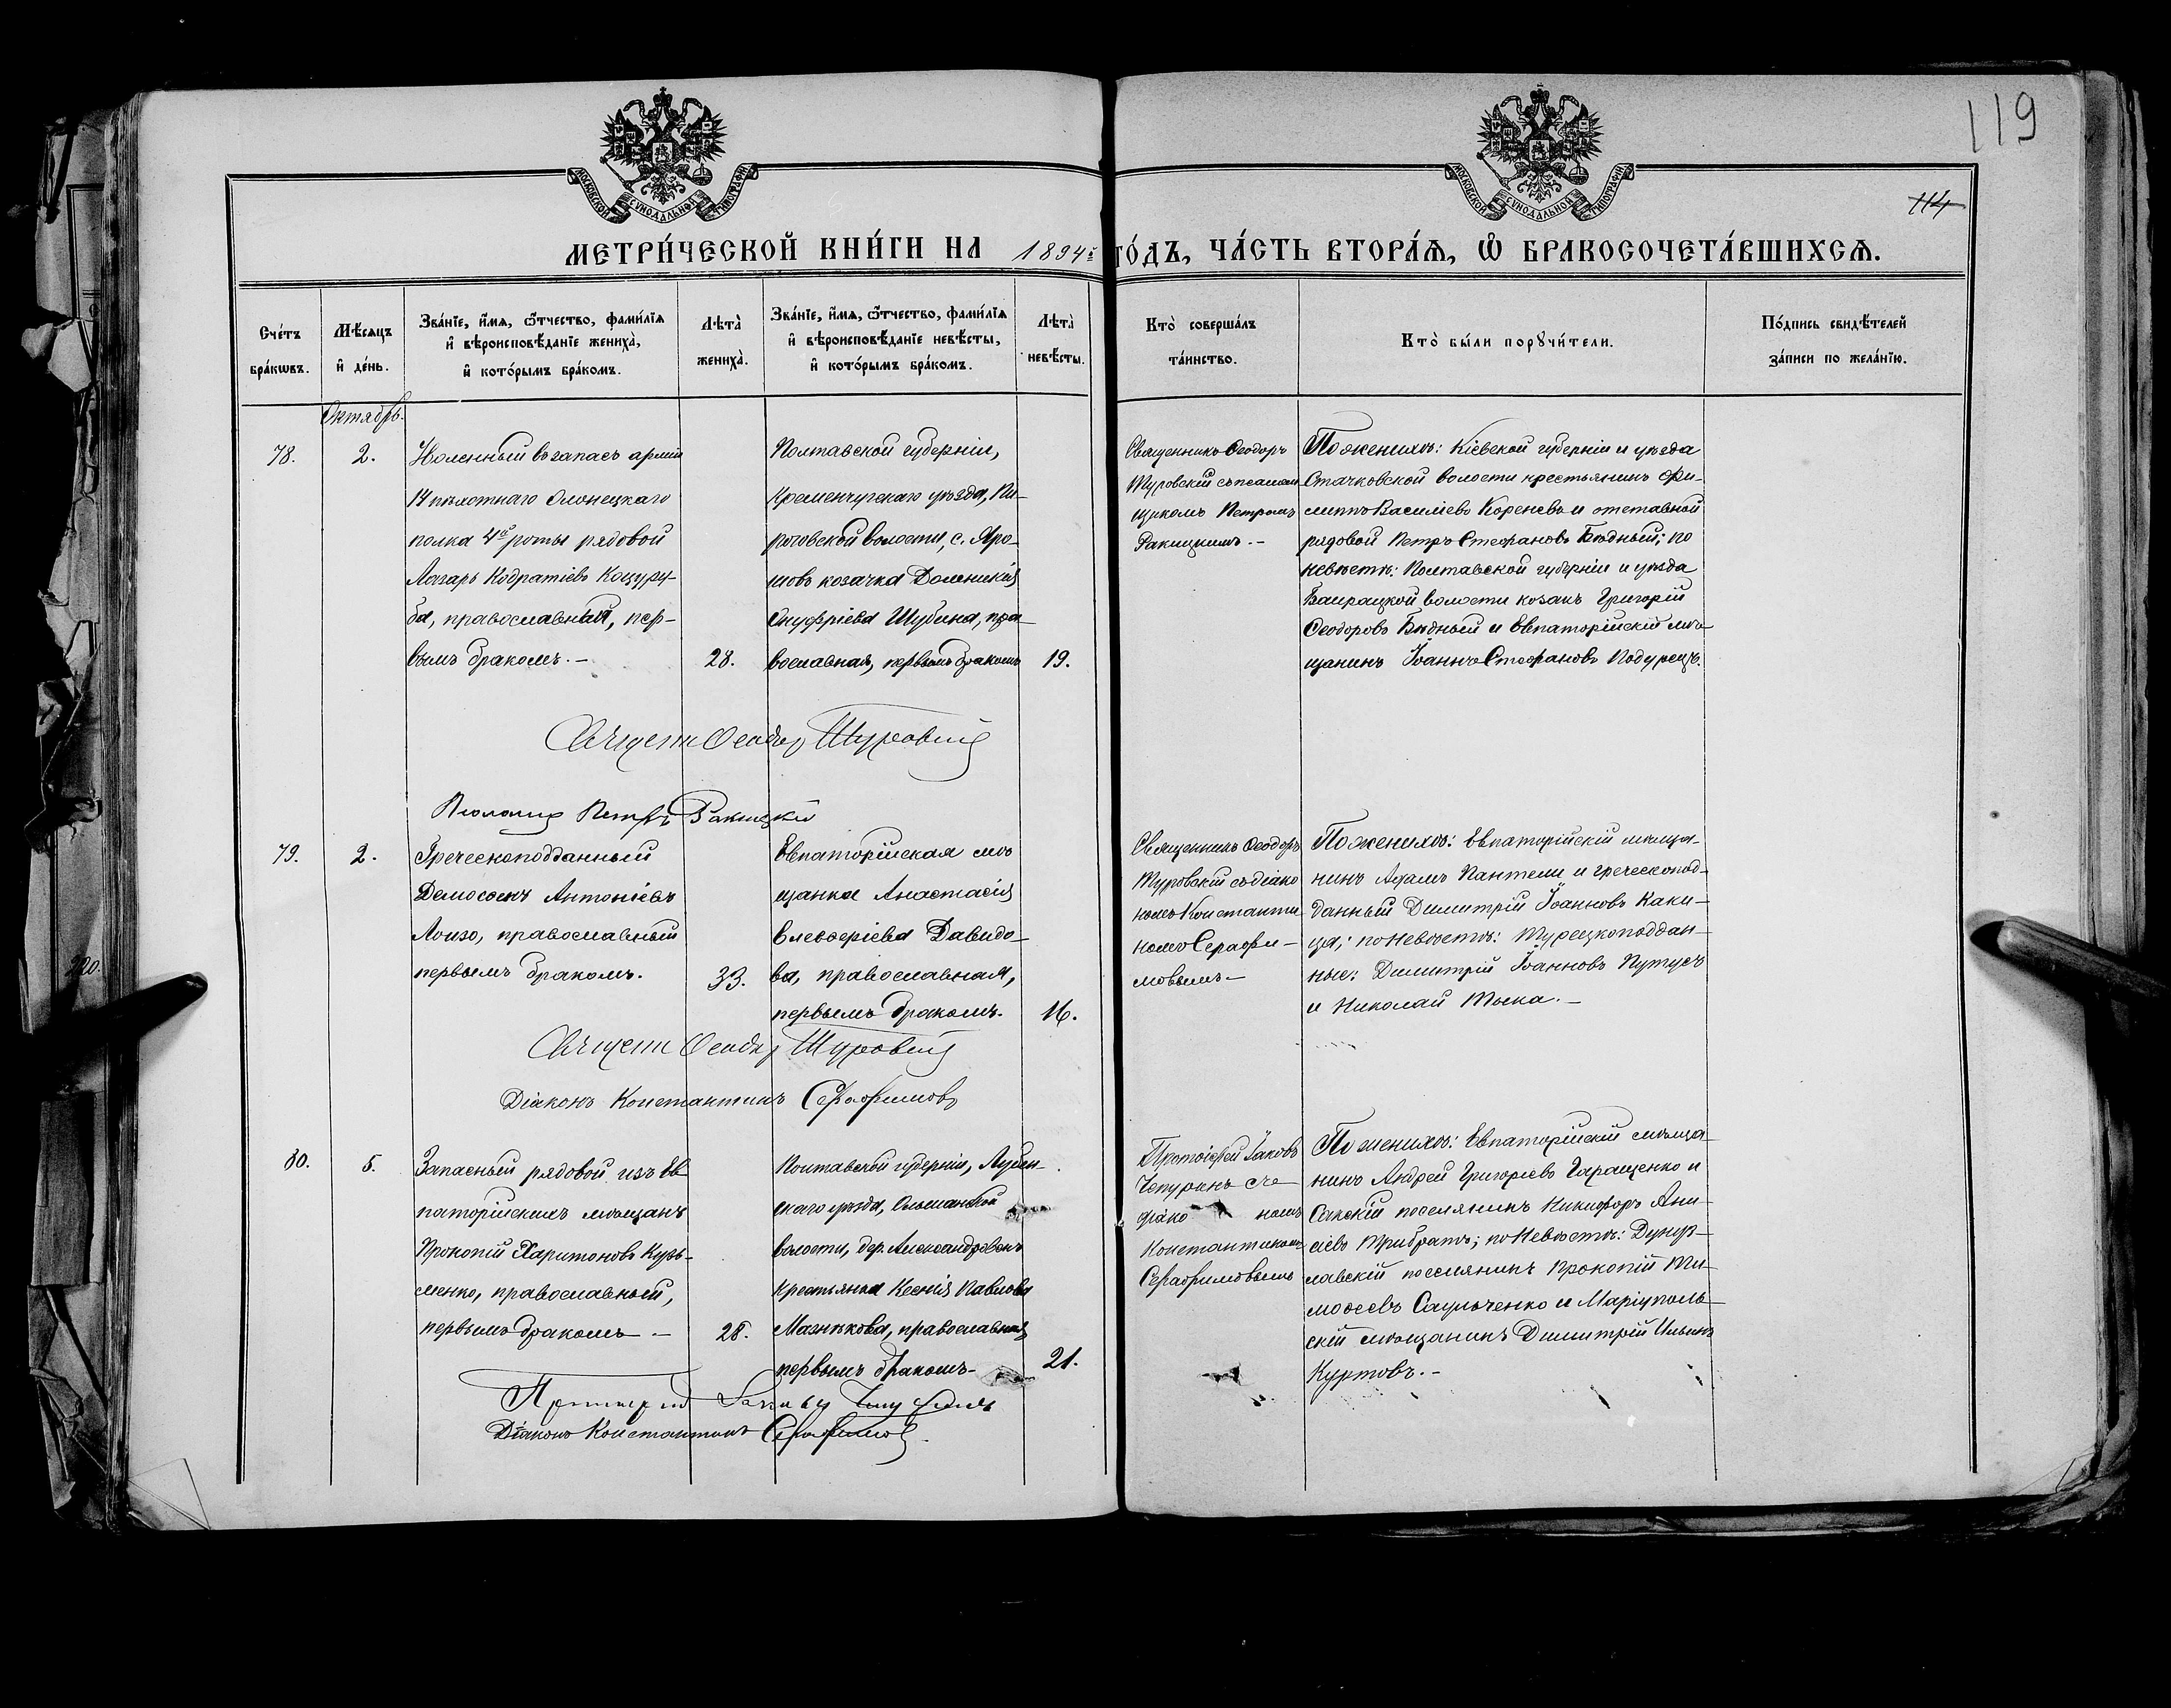 119
114
МЕТРИ́ЧЕСКОЙ КНИ́ГИ НА 1894й ГО́ДЪ, ЧА́СТЬ ВТОРА́Я, Ѽ БРАКОСОЧЕТА́ВШИХСЯ.
МОСКОВСКОЙ СѴНОДАЛЬНОЙ ТИПОГРАФІИ
МОСКОВСКОЙ СѴНОДАЛЬНОЙ ТИПОГРАФІИ
Сче́тъ
бра́кωвъ.
Мѣ́сяцъ
и҆ де́нь.
Зва́нїе, и҆́мя, ѻ҆́тчество, фами́лїя
и҆ вѣроисповѣ́данїе жениха̀,
и҆ кото́рымъ бра́комъ.
Лѣта̀
жениха̀.
Зва́нїе, и҆́мя, ѻ҆́тчество, фами́лїя
и҆ вѣроисповѣ́данїе невѣ́сты,
и҆ кото́рымъ бра́комъ.
Лѣта̀
невѣ́сты.
Кто̀ соверша́лъ
та́инство.
Кто̀ бы́ли порꙋчи́тели.
По́дпись свидѣ́телей
за́писи по жела́нїю.
Октябрь.
78.
2.
въ запасъ арміи
14 пѣхотнаго Олонецкаго
полка 4й роты рядовой
Лазарь Кодратіевъ Коцуру-
ба, православный, пер-
вымъ бракомъ.-
28.
Полтавской губерніи,
Кременчугскаго уѣзда, Пи-
роговской волости, с. Яро-
шовъ козачка Домникія
Онуфріева Шубина, пра-
вославная, первымъ бракомъ
19.
Священникъ Ѳеодоръ
Туровскій съ псалом
щикомъ Петромъ
Ракицкимъ.-
По женихѣ: Кіевской губерніи и уѣзда
Стачковской волости крестьянинъ Фи-
липпъ Василіевъ Кореневъ и отставной
рядовой Петръ Стефановъ Бѣдный; по
невѣстѣ: Полтавской губерніи и уѣзда
Баирацкой волости козакъ Григорій
Ѳеодоровъ Бѣдный и Евпаторійскій мѣ-
щанинъ Іоаннъ Стефановъ Подурецъ.
Священ Ѳеодор Туровскій
Псаломщ Петръ Ракицкій
79.
2.
Греческоподданный
Демосѳенъ Антоніевъ
Лоизо, православный
первымъ бракомъ.
33.
Евпаторійская мѣ
щанка Анастасія
Елевѳеріева Давидо-
ва, православная,
первымъ бракомъ.
16.
Священникъ Ѳеодоръ
Туровскій съ діако
номъ Константи
номъ Серафи-
мовымъ-
По женихѣ: Евпаторійскій мѣща-
нинъ Адамъ Пантели и греческопод-
данный Димитрій Іоанновъ Каки-
ца; по невѣстѣ: Турецкоподдан-
ные: Димитрій Іоанновъ Путусъ
и Николай Тыка.-
Священ Ѳеодор Туровскій
Діаконъ Константинъ Серафимовъ
80.
5.
Запасный рядовой изъ Ев
паторійскихъ мѣщанъ
Прокопій Харитоновъ Кузь-
менко, православный,
первымъ бракомъ-
28.
Полтавской губерніи, Лубен-
скаго уѣзда,
волости, дер. Александровки
крестьянка Ксенія Павлова
Мазнѣкова, православная
первымъ бракомъ-
21.
Протоіерей Іаковъ
Чепуринъ съ
діако номъ
Константиномъ
Серафимовымъ
По женихѣ: Евпаторійскій мѣща-
нинъ Андрей Григоріевъ Гаращенко и
Сакскій поселянинъ Никифоръ Ани-
сіевъ Прибратъ; по невѣстѣ: Дунуз-
лавскій поселянинъ Прокопій Ти-
моѳеевъ Саульченко и Маріуполь-
скій мѣщанинъ Димитрій Ильинъ
Куртовъ.-
Протоіерей Іаковъ Чепуринъ
Діаконъ Константинъ Серафимовъ
220.